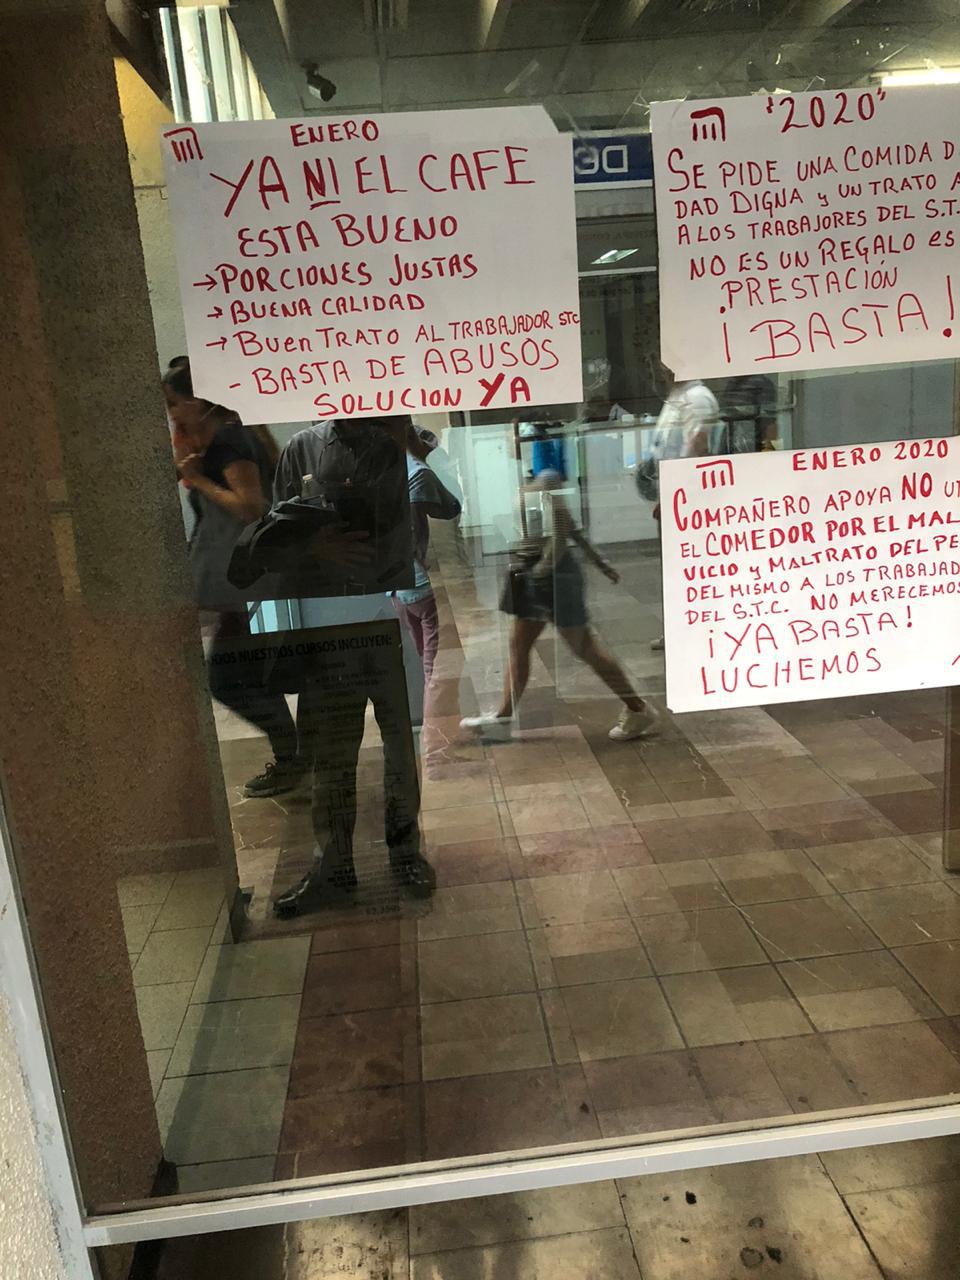 ENERO
YA NI EL CAFE
ESTA BUENO
→PORCIONES JUSTAS
→BUENA CALIDAD
→BUEN TRATO AL TRABAJADOR STC
- BASTA DE ABUSOS
SOLUCION YA
"2020"
SE PIDE UNA COMIDA D
DAD DIGNA y UN TRATO A
A LOS TRABAJORES DEL S.T.
NO ES UN REGALO es
PRESTACIÓN
¡BASTA!
ENERO 2020
COMPAÑERO APOYA NO UT
EL COMEDOR POR EL MAL
VICIO y MALTRATO DEL PE
DEL MISMO A LOS TRABAJAD
DEL S.T.C. NO MERECEMOS
¡YA BASTA!
LUCHEMOS
DE
TODOS NUESTROS CURSOS INCLUYEN: